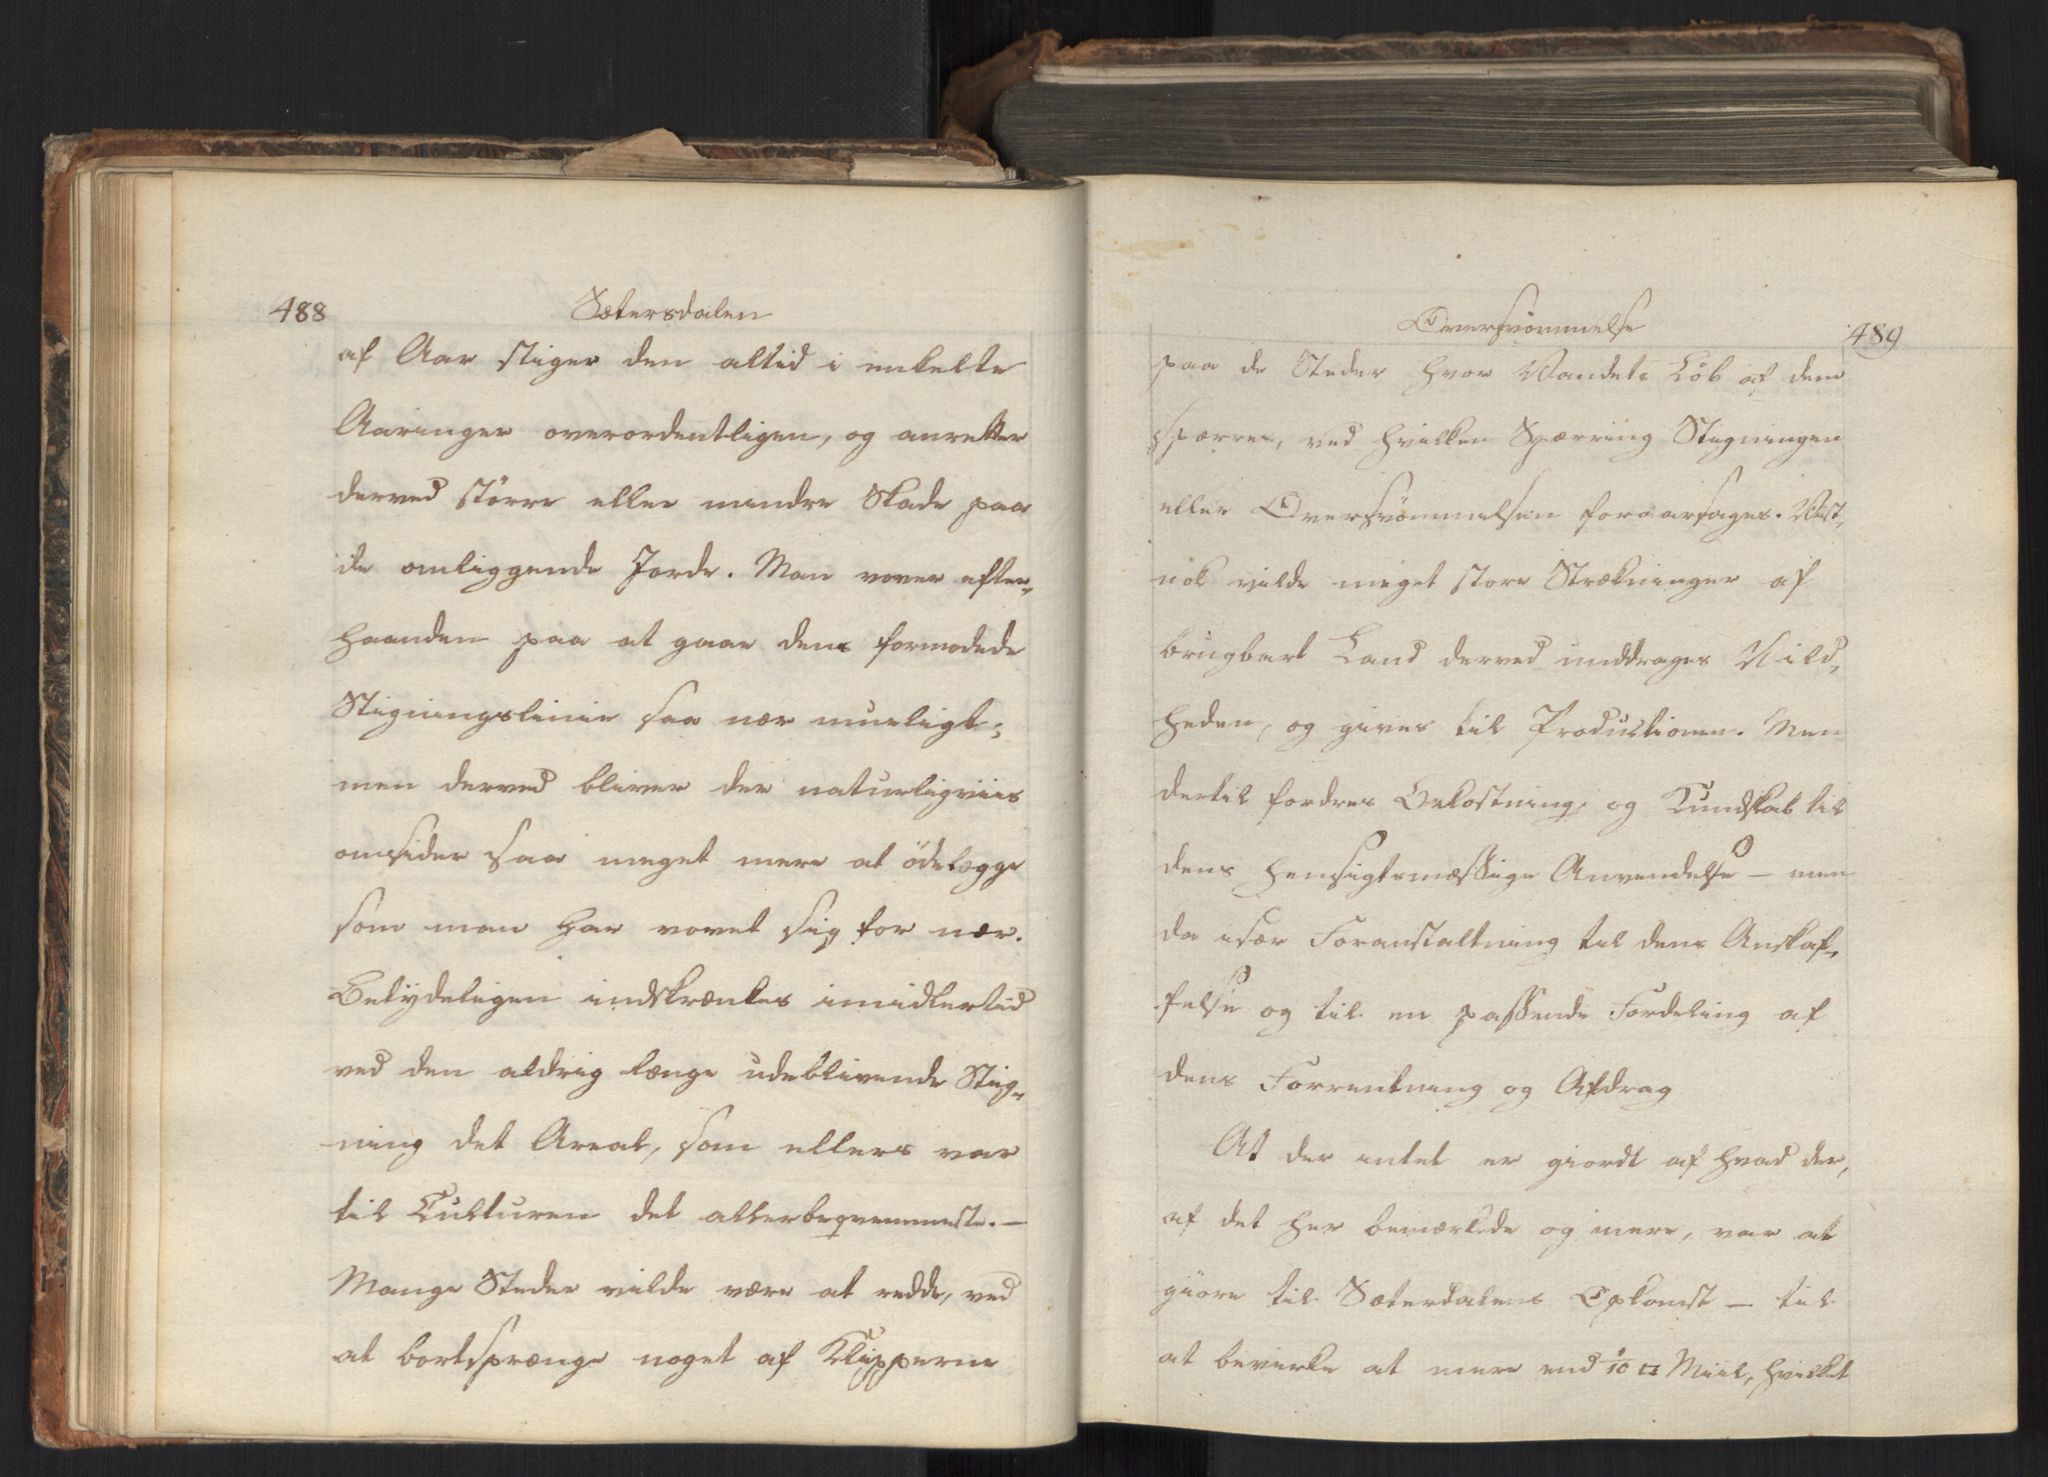 488
Sætersdalen
af Aar stiger den altid i enkelte
Aaringer overordentligen, og anretter
derved större eller mindre Skade paa
de omliggende Jorde. Man vover efter¬
haanden paa at gaae den formodede
Stigningslinie saa nær mueligt;
men derved bliver der naturligviis
omsider saa meget mere at ödelægge
som man har vovet sig for nær.
Betydeligen indskrænkes imidlertid
ved den aldrig længe udeblivende Stig¬
ning det Areal, som ellers var
til Culturen det allerbeqvemmeste. —
Mange Steder vilde være at redde, ved
at bortsprænge noget af Klipperne
Oversvömmelse
489
paa de Steder hvor Vandets Löb af dem
spærres, ved hvilken Spærring Stigningen
eller Oversvömmelsen foraarsages. Vist¬
nok vilde meget store Strækninger af
brugbart Land derved unddrages Vild¬
heden, og gives til Productionen. Men
dertil fordres Bekostning, og Kundskab til
dens hensigtsmæssige Anvendelse — men
da især Foranstaltning til dens Anskaf¬
felse og til en passende Fordeling af
dens Forrentning og Afdrag
At der intet er giordt af hvad der,
af det her bemærkede og mere, var at
giöre til Sæterdalens Opkomst — til
at bevirke at mere end 1/10 □ Miil, hvilket